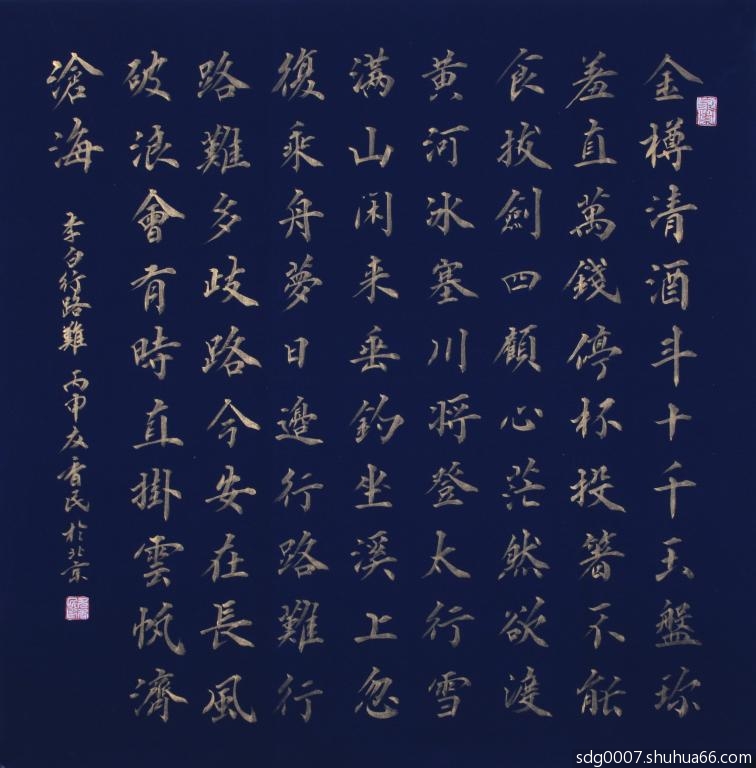 金樽清酒斗十千玉盤珎
羞直萬錢停杯投箸不能
食拔劍四顧心茫然欲渡
黄河冰塞川将登太行雪
满山闲来垂釣坐溪上忽
復乘舟夢日邊行路難行
路難多歧路今安在長風
破浪會有時直掛雲帆濟
滄海
李白行路難 丙申友香民於北京
sdg0007.shuhua66.com